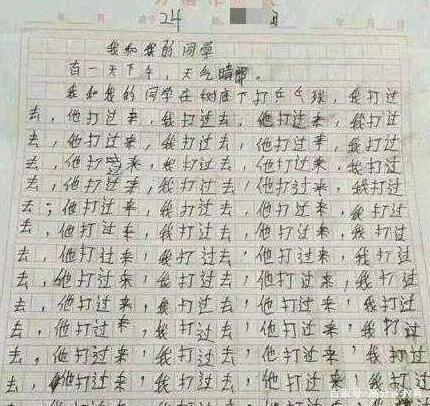 24
我和我的同学
百一天下午，天气晴朗。
我和我的同学在树底下打乒乓球，我打过
去，他打过来，我打过去，他打过来，我打过
去，他打过来，我打过去，他打过来，我打过
去，他打过来，我打过去，他打过来，我打过
去，他打过来，我打过去，他打过来，我打过
去，他打过来，我打过去，他打过来，我打过
去，他打过来，我打过去，他打过来，我打过
去，他打过来，我打过去，他打过来，我打过
去，他打过来，我打过去，他打过来，我打过
去，他打过来，我打过去，他打过来，我打过
去，他打过来，我打过去，他打过来，我打过
去，他打过来，我打过去，他打过来，我打过
去，他打过来，我打过去，他打过来，我打过
去，他打过来，我打过去，他打过来